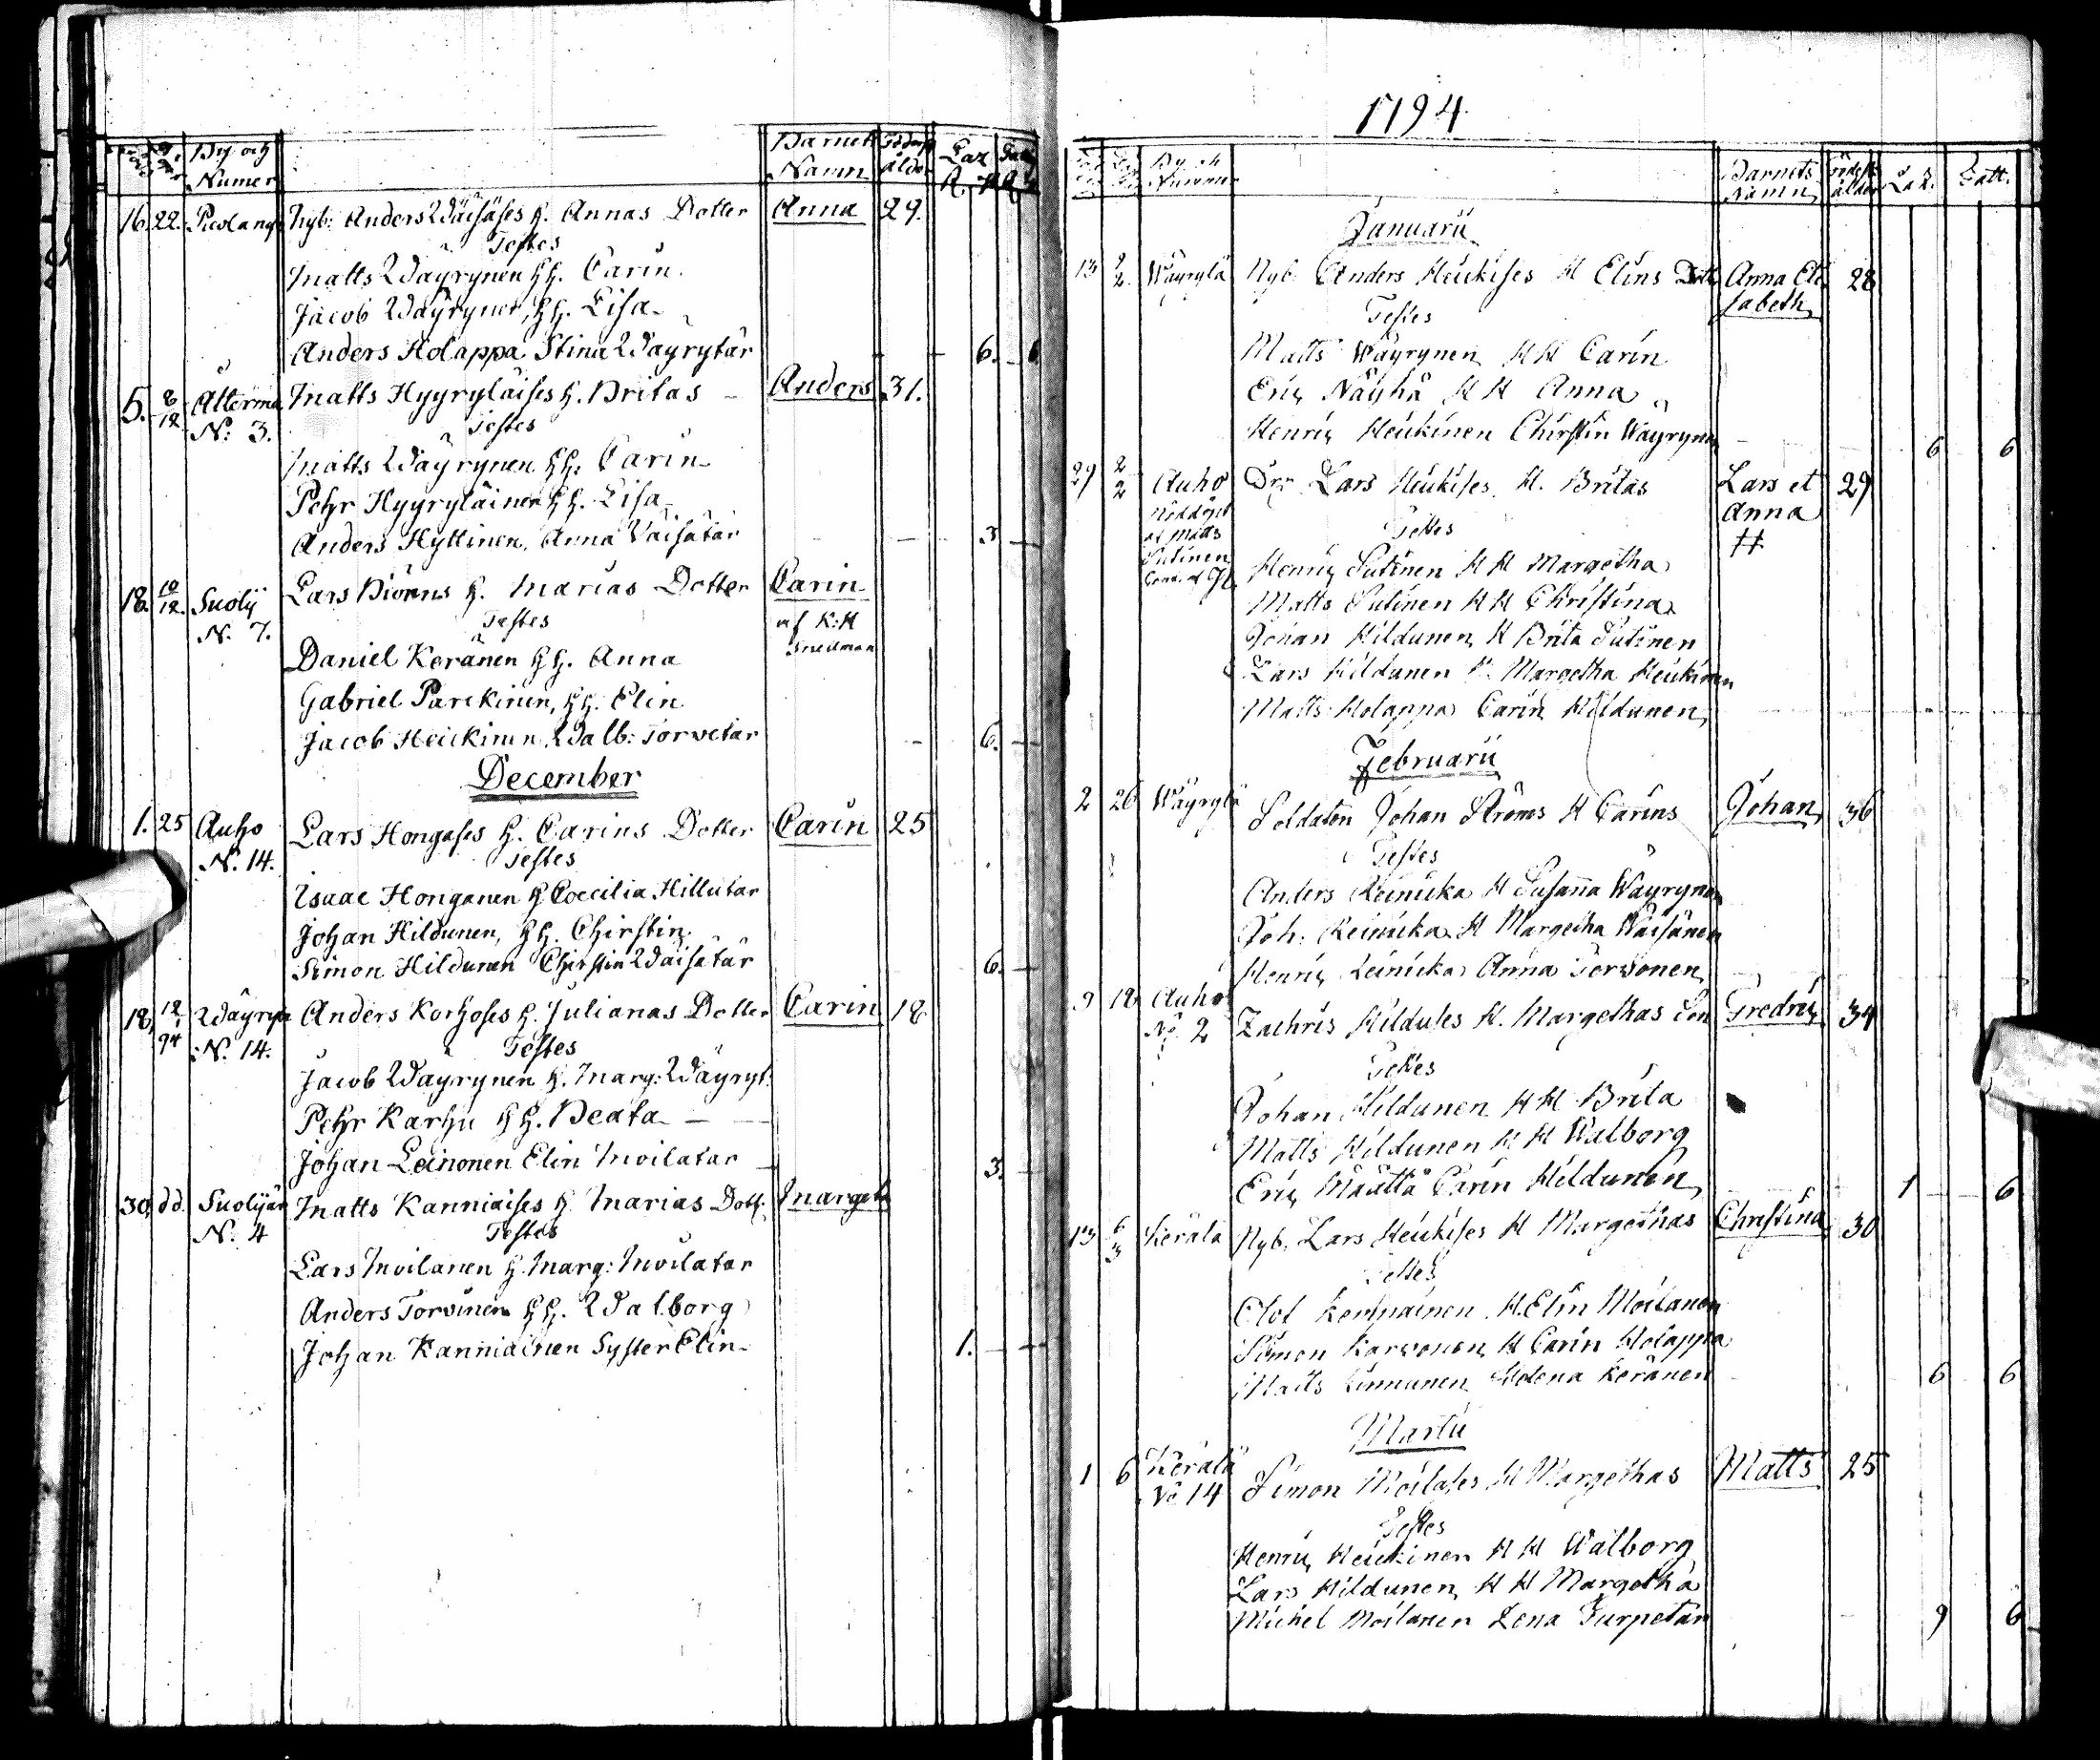 By och Numer Barnets Namn ålder Laz
16. 22. Anders Wäisäses h. Annas Dotter Anna 29.
Testes
Matts Wäyrynen h h. Carin.
Jacob Wäyrynen, h h. Lisa
Anders Holappa Stina Wäyrytär 6.
5. 8/12 N: 3. Matts Hyyryläises h. Britas Anders 31.
Testes
Matts Wäyrynen h h. Carin
Pehr Hyyryläinen h h. Lisa
Anders Hyttinen, Anna Väisätär 3
18. 10/12. Suolij N. 7. Lars Biörns h. Marias Dotter Carin af K:H
Testes
Daniel Keränen h h. Anna
Gabriel Parckinen, h h. Elin
Jacob Heickinen Walb: Torvetar 6.
December
1. 25 Auho N. 14. Lars Hongases h. Carins Dotter Carin 25
Testes
Isaac Honganen h Coecilia Hillutar
Johan Hildunen, h h. Chirstin
Simon Hildunen Chirstin Wäisätär 6.
18. 12/1 94 N. 14. Anders Korhoses h. Julianas Dotter Carin 18
Testes
Jacob Wäyrynen h. Marg: Wäyryt.
Pehr Karhu h h. Beata
Johan Leinonen Elin Moilatar 3.
30. dd. Suolijär N. 4 Matts Kanniaises h Marias Dott. Margeta
Testes
Lars Moilanen h. Marg: Moilatar
Anders Torvinen h h. Walborg
Johan Kanniainen Syster Elin 1.
1794
Barnets Namn ålder Laz. Latt.
Januarii
13 2/2 Wäyrylä Nyb. Anders Heikises H Elins Dott Anna Eli sabeth 28
Testes
Matts Wäyrynen H H Carin
Eric Näyhä H H Anna
Henric Heikinen Chirstin Wäyrynen 6 6
29 2/2 Auho Lars Heikises H. Britas Lars et Anna # 29
Nöddöpt af Matts Sutinen
Testes
Henric Sutinen H H Margetha
Matts Sutinen H H Christina
Johan Hildunen H Brita Sutinen
Lars Hildunen H. Margetha Heikinen
Matts Holappa Carin Hildunen
Februarii
2 26 Wäyrylä Soldaten Johan Ströms H Carins Johan 36
Testes
Anders Leinicka H Susanna Wäyrynen
Joh: Leinicka H Margetha Wäisänen
Henric Leinicka Anna Torvonen
9 12 Auho No 2 Zachris Hilduses H. Margethas Son Fredric 34
Testes
Johan Hildunen H H Brita
Matts Hildunen H H Walborg
Eric Määttä Carin Hildunen 1 6
13 6/3 Kerälä Nyb. Lars Heikises H Margethas Christina 30
Testes
Olof Kempainen H. Elin Moilanen
Simon Karvonen H Carin Holappa
Matts Kinnunen Helena Keränen 6 6
Martii
1 6 Kerälä No 14 Simon Moilases H Margethas Matts 25
Testes
Henric Heickinen H H Walborg
Lars Hildunen H H Margetha
Michel Moilanen Lena Turpetar 9 6